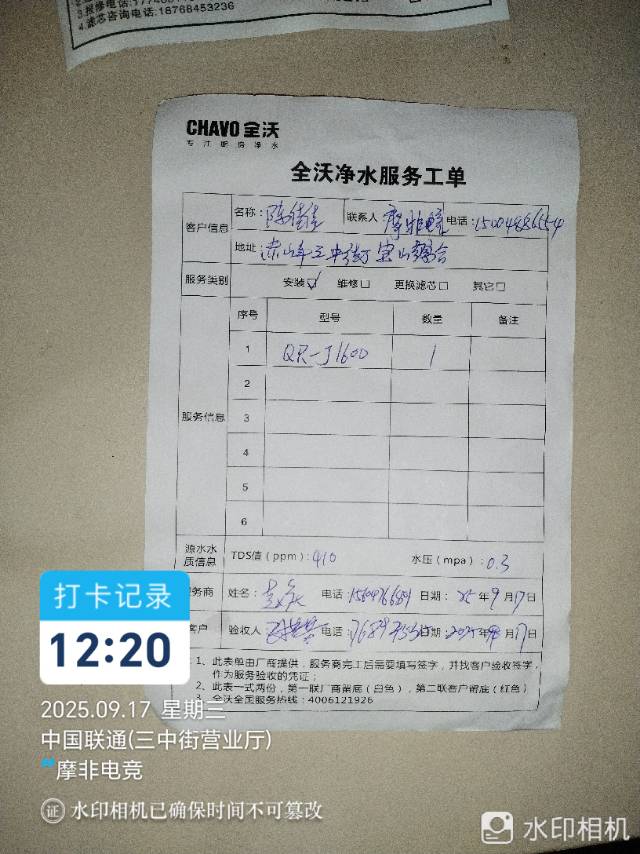 4.滤芯咨询电话:18768453236
CHAVO 全沃
专注厨房净水
全沃净水服务工单
客户信息
名称: 陈佳佳 联系人 电话:
地址: 三中街
服务类别 安装☑ 维修□ 更换滤芯□ 其它□
服务信息
序号 型号 数量 备注
1 QR-J1600 1
2
3
4
5
6
源水水质信息 TDS值(ppm): 410 水压(mpa): 0.3
服务商 姓名: 电话: 日期: 25年9月17日
客户 验收人 电话: 日期: 2025年9月17日
1、此表单由厂商提供,服务商完工后需要填写签字,并找客户验收签字,
作为服务验收的凭证;
2、此表一式两份,第一联厂商留底(白色),第二联客户留底(红色)
3、全沃全国服务热线:4006121926
打卡记录
12:20
2025.09.17 星期三
中国联通(三中街营业厅)
摩非电竞
证 水印相机已确保时间不可篡改
水印相机